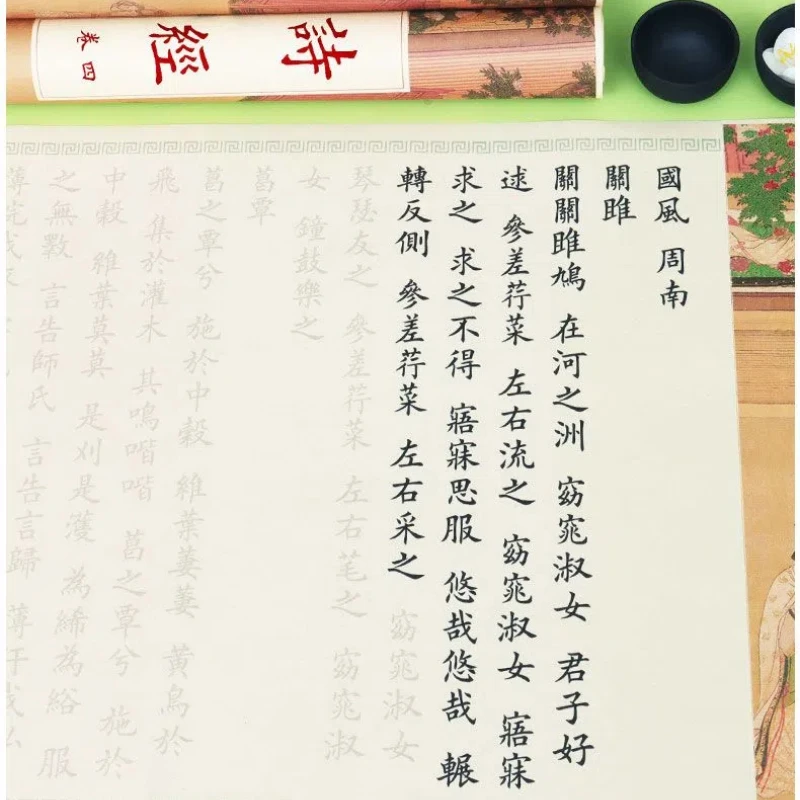 詩經
卷四
國風 周南
關雎
關關雎鳩 在河之洲 窈窕淑女 君子好
逑 參差荇菜 左右流之 窈窕淑女 寤寐
求之 求之不得 寤寐思服 悠哉悠哉 輾
轉反側 參差荇菜 左右采之 窈窕淑女
琴瑟友之 參差荇菜 左右芼之 窈窕淑
女 鐘鼓樂之
葛覃
葛之覃兮 施於中穀 維葉萋萋 黃鳥於
飛 集於灌木 其鳴喈喈 葛之覃兮 施於
中穀 維葉莫莫 是刈是濩 為絺為綌 服
之無斁 言告師氏 言告言歸 薄汙我私